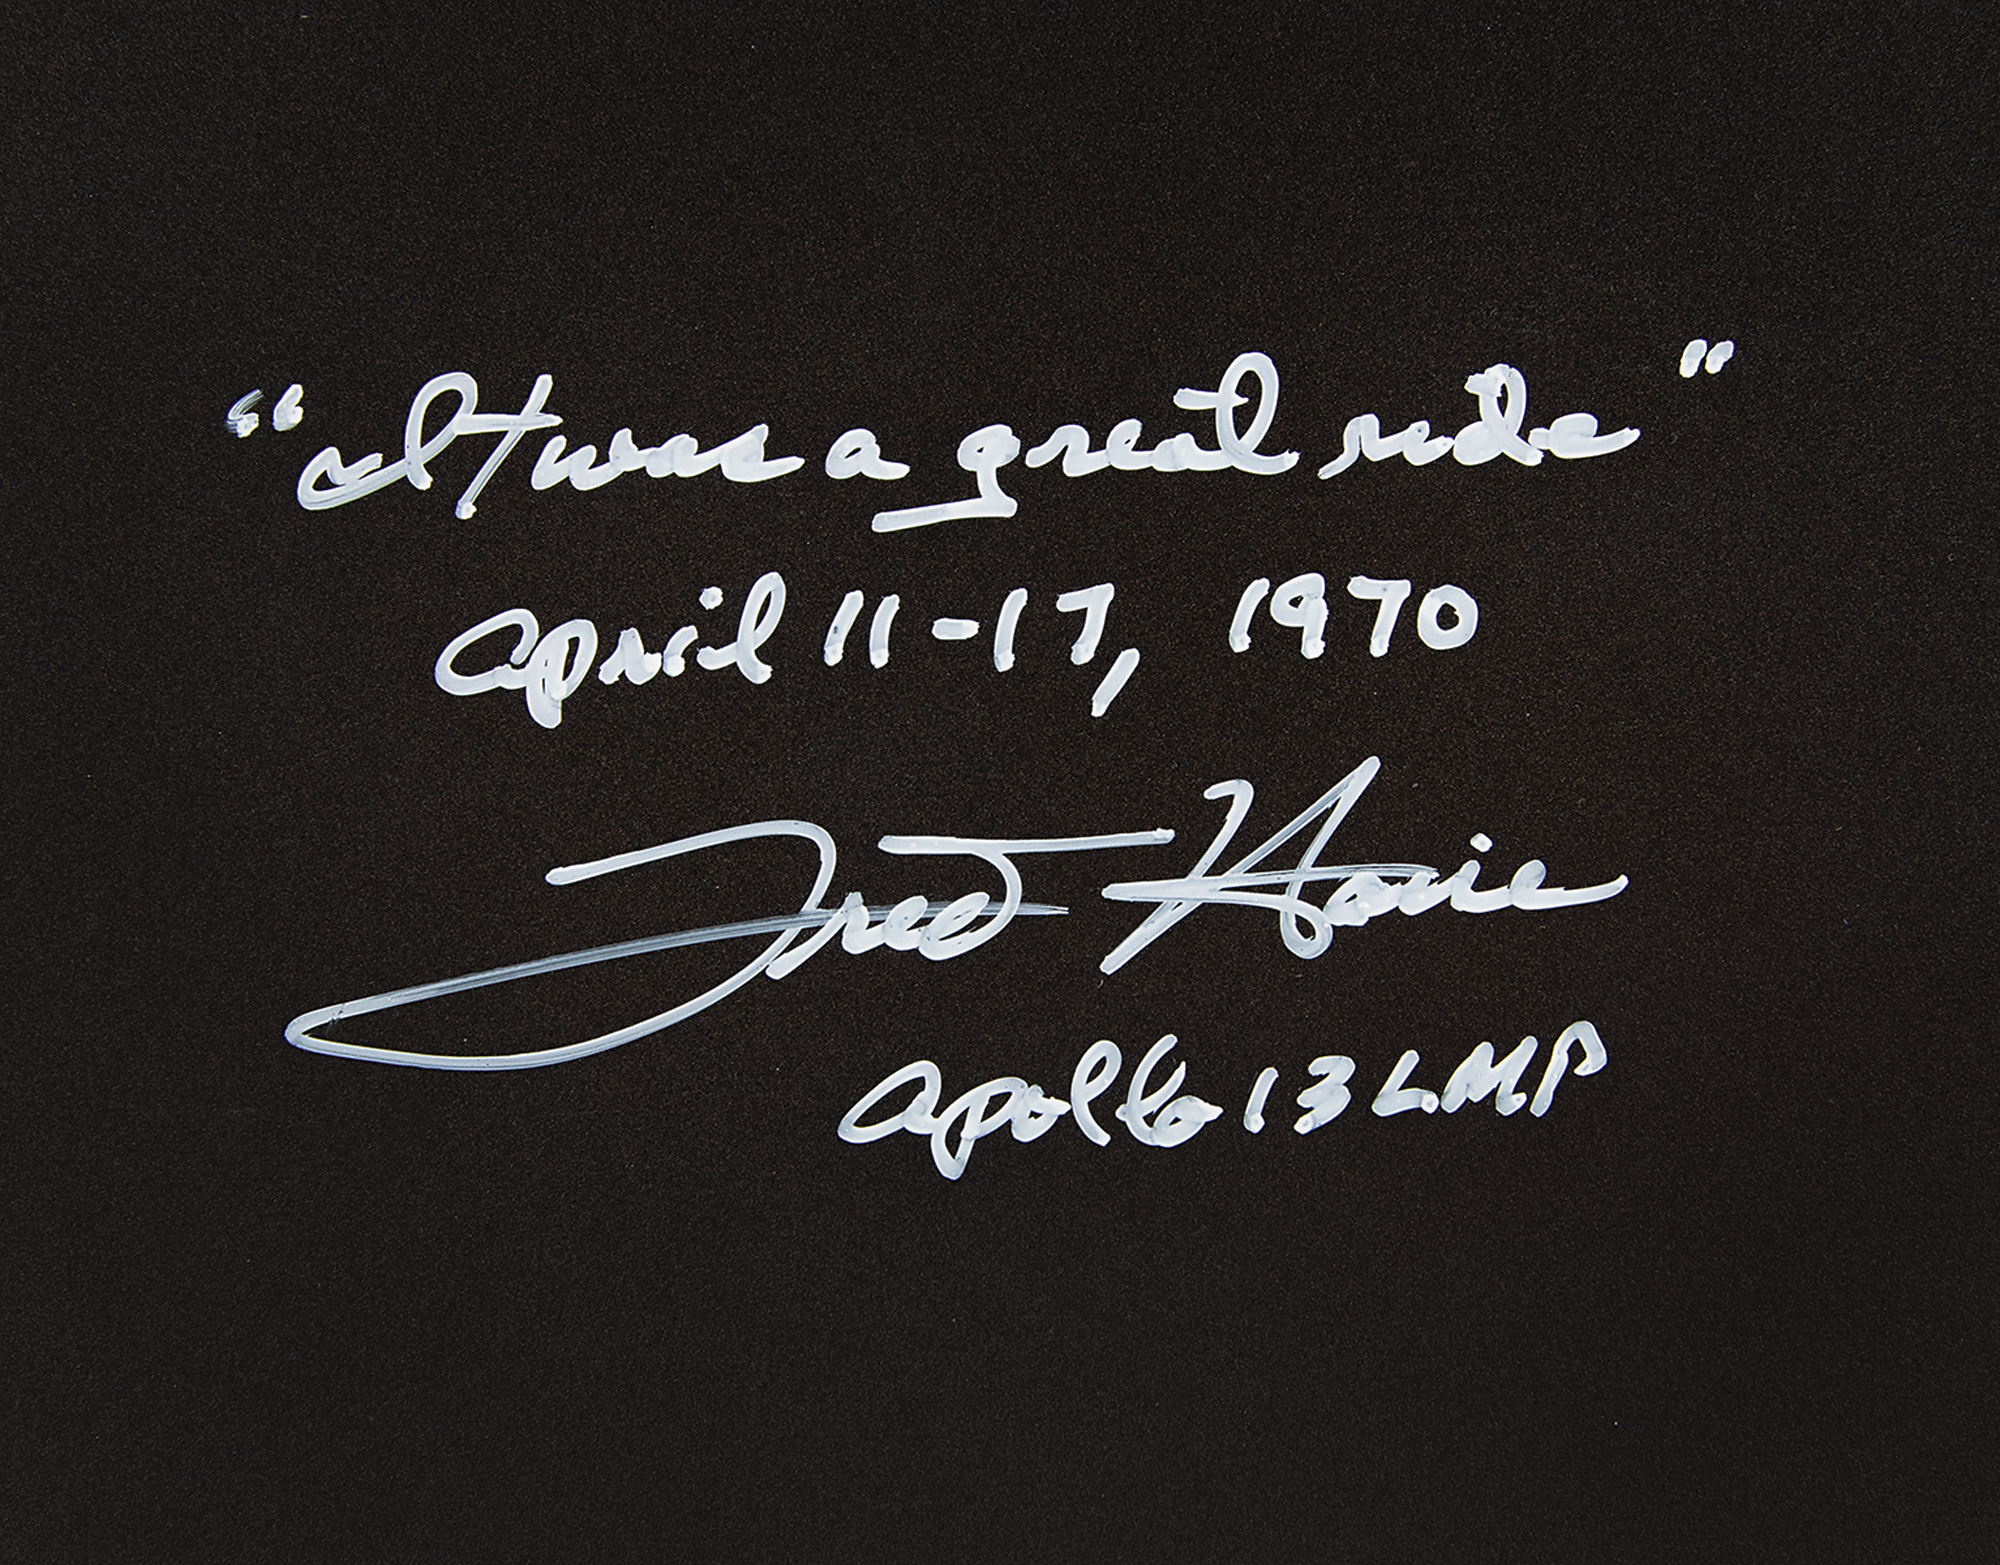 "It was a great ride"
April 11-17, 1970
Fred Haise
Apollo 13 LMP